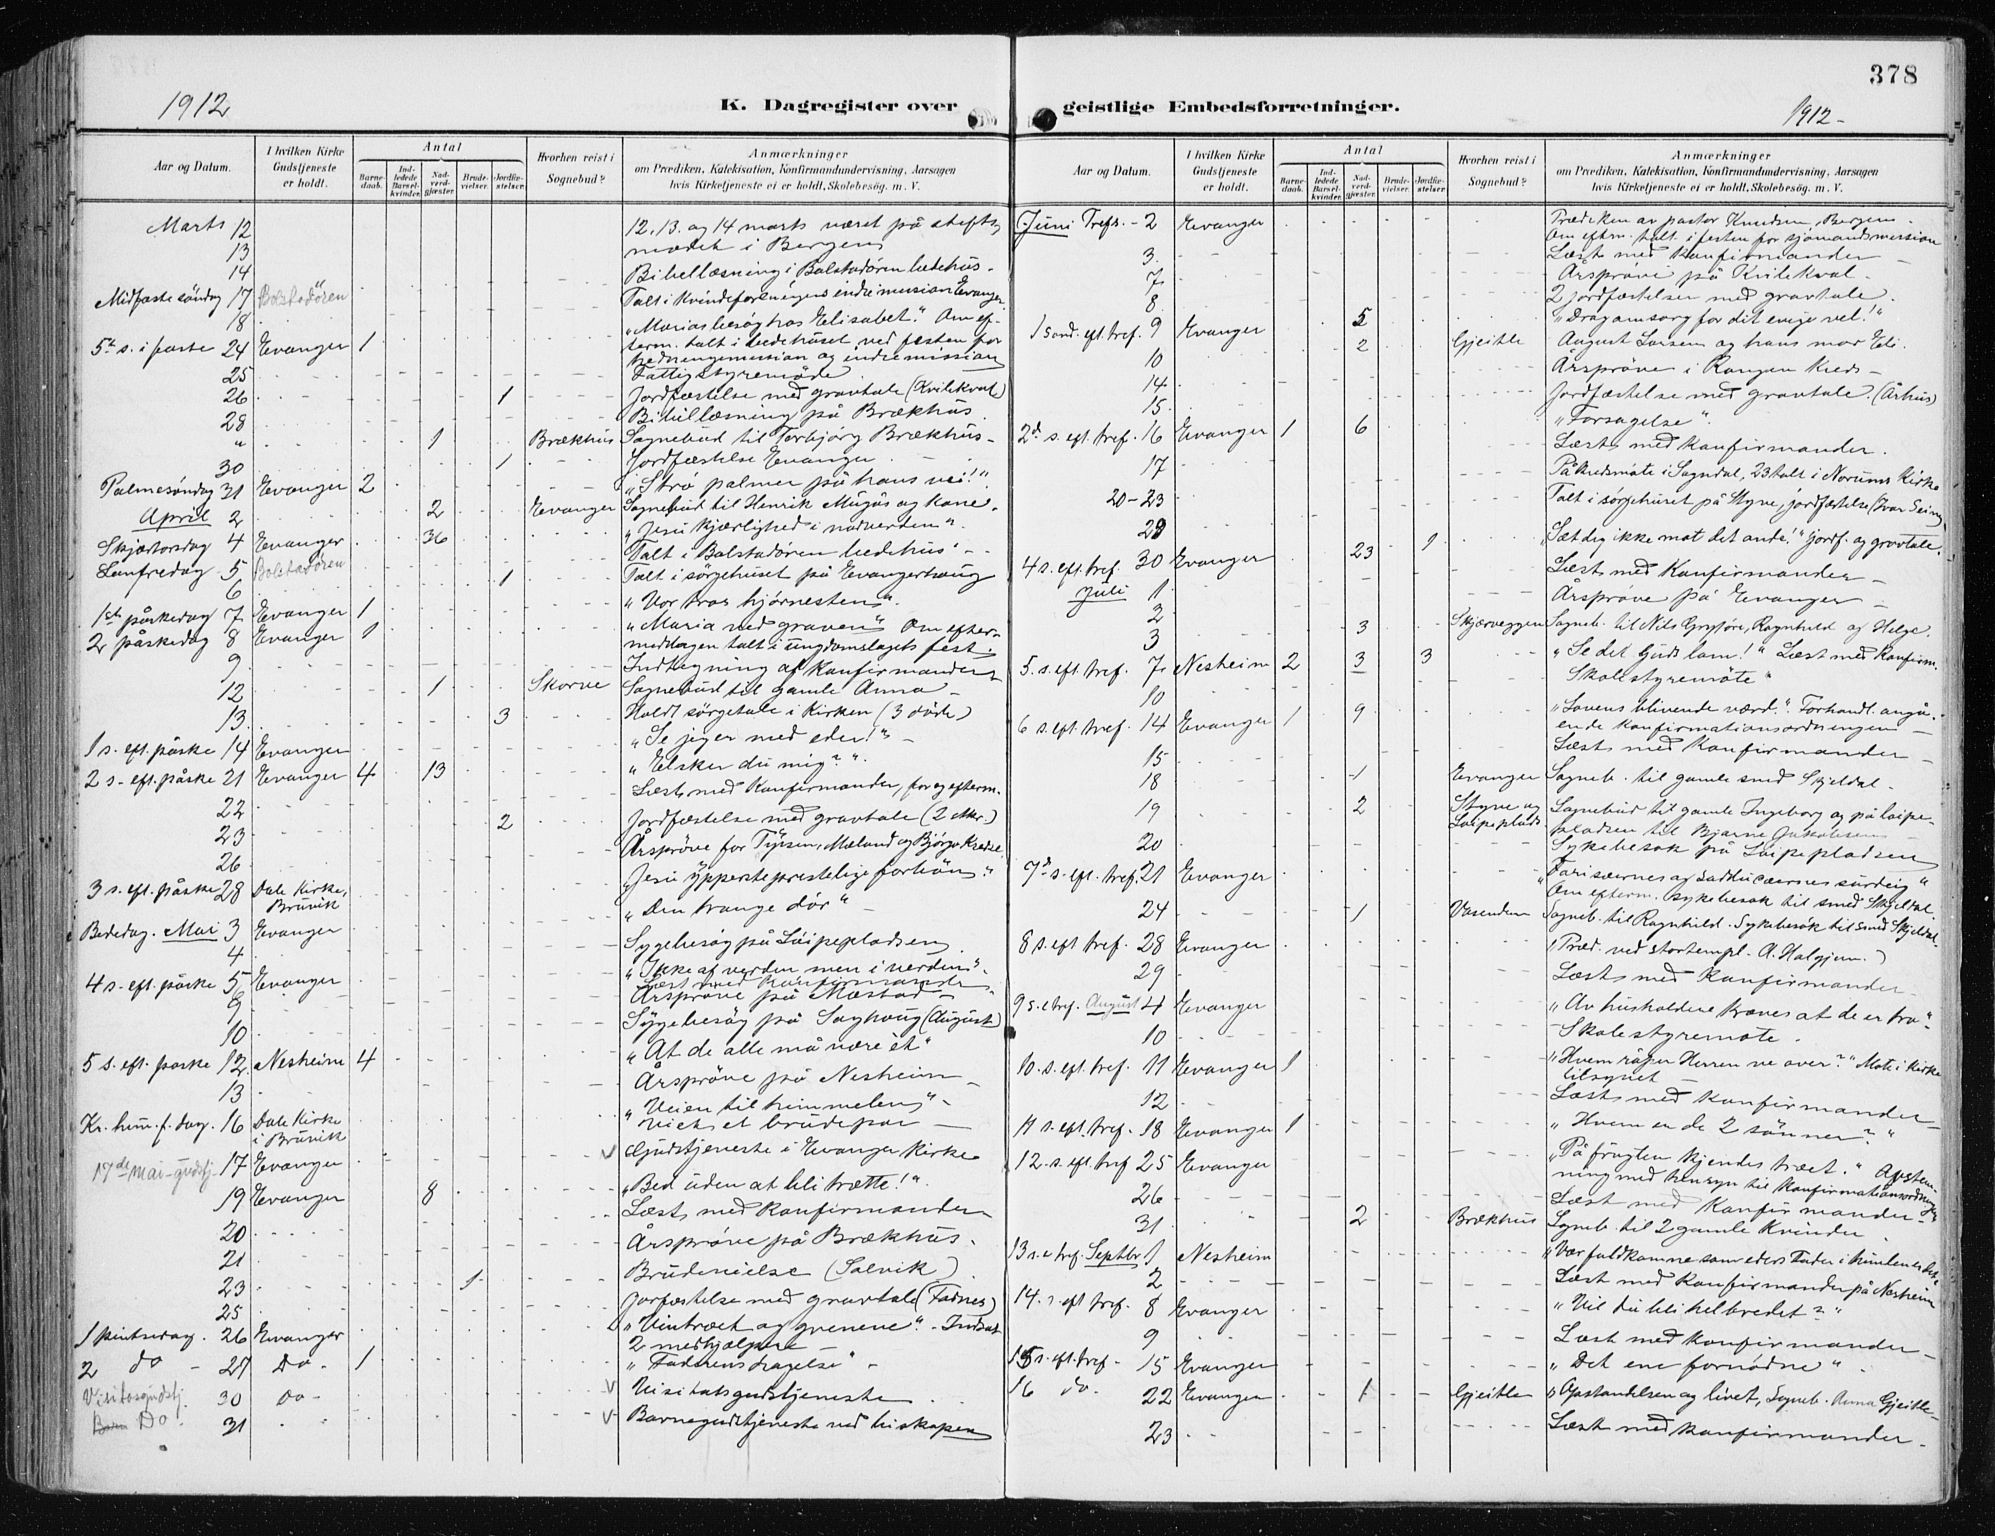 378
1912
K. Dagregister over
geistlige Embedsforretninger.
1912-
Aar og Datum.
I hvilken Kirke Gudstjeneste er holdt.
Antal
Barnedaab.
Indledede Barselkvinder.
Nadverdgjæster.
Brudevielser.
Jordfæstelser.
Hvorhen reist i Sognebud?
Anmærkninger
om Prædiken, Katekisation, Konfirmandundervisning, Aarsagen
hvis Kirketjeneste ei er holdt, Skolebesøg. m. V.
Marts 12 12, 13. og 14 marts været på stifts
13 mødet i Bergen
14 Bibellæsning i Bolstadören bedehus.
Midfaste söndag 17 Bolstadören Talt i Kvindeforeningens indremission Evanger
18 "Marias besøg hos Elisabet." Om ef-
5te s. i faste 24 Evanger 1 term. talt i bedehuset ved festen for
hedningemission og indremission
25 Fattigstyremöde
26 1 Jordfæstelse med gravtale (Kvilekval)
28 Bibellæsning på Brækhus.
" 1 Brækhus Sognebud til Torbjörg Brækhus-
30 1 Jordfæstelse Evanger
Palmesöndag 31 Evanger 2 "Strö palmer på hans vei!"
April 2 2 Evanger Sognebud til Henrik Mugås og kone.
Skjærtorsdag 4 Evanger 36 "Jesu kjærlighed i nadverden".
Lanfredag 5 Bolstadören Talt i Bolstadören bedehus -
6 1 Talt i sörgehuset på Evangerhaug
1ste påskedag 7 Evanger 1 "Vor tros hjörnesten"
2 påskedag 8 Evanger 1 "Maria ved graven" Om efter-
middagen talt i ungdomslagets fest.
9 Indtegning af Konfirmander
12 1 Skorve Sognebud til gamle Anna -
13 3 Holdt sörgetale i Kirken (3 döde)
1 s. eft. påske 14 Evanger "Se jeg er med eder!" -
2 s. eft. påske 21 Evanger 4 13 "Elsker du mig?".
22 Læst med Konfirmander, for og efterm.
23 2 Jordfæstelse med gravtale (2 )
26 Årspröve for Tyssen, Mæland og Björgo Kredse
3 s. eft. påske 28 Dale Kirke, Bruvik "Jesu ypperstepræstelige forbön."
Bededag. Mai 3 Evanger "Den trange dör" -
4 Sygebesøg på Låipepladsen
4 s. eft. påske 5 Evanger "Ikke af verden men i verden".
Læst med Konfirmander
9 Årspröve på Mæstad -
10 Sygebesøg på Saghaug (August)
5 s. eft. påske 12 Nesheim 4 "At de alle må være ét"
13 Årspröve på Nesheim -
Kr. him. f. dag. 16 Dale Kirke i Bruvik "Veien til himmelen" -
viet et brudepar -
17de mai-gudstj. 17 Evanger Gudstjeneste i Evanger Kirke
19 Evanger 8 "Bed uden at bli trætte!".
20 Læst med Konfirmander
21 Årspröve på Brækhus.
23 1 Brudevielse (Salvik)
25 Jorfæstelse med gravtale (Fadnes)
1 pintsedag. 26 Evanger "Vintræet og grenene". - Indsat
2 medhjælpere -
2 do - 27 Do- 1 "Faderens dragelse" -
Visitasgudstj 30 do - Visitatsgudstjeneste
Do 31 Barnegudstjeneste ved biskopen
Juni Trefs. - 2 Evanger Prædiken av pastor Knudsen, Bergen.
Om efterm. talt i festen for sjömandsmission
3. Læst med Konfirmander
7 Årspröve på Kvilekval.
8 2 jordfæstelser med gravtale.
1 sönd. eft. tref. 9 Evanger 5 "Drag omsorg for dit evige vel!"
10 2 Gjeitle August Larsen og hans mor Eli.
14 Årspröve i Rangen Kreds-
15. Jordfæstelse med gravtale. (Århus)
2d s. eft. tref. 16 Evanger 1 6 "Forsagelse".
17 Læst med Konfirmander.
20-23 På Kredsmöte i Sogndal, 23 talt i Norums Kirke
29 Talt i sörgehuset på Styve, jordfæstelse Ivar Seim
4 s. eft. tref. 30 Evanger 23 1 "Sæt dig ikke mot det onde!" jordf. og gravtale.
Juli 1 Læst med Konfirmander -
2 Årspröve på Evanger -
3 3 Skjærveggen Sogneb. til Nils Grytöre, Ragnhild og Helge.
5. s. eft tref. 7 Nesheim 2 3 3 "Se det Guds lam!" Læst med Konfirm.
10 Skolestyremöte"
6 s. eft. tref. 14 Evanger 1 9 "Lovens blivende værd." Forhandl. angå-
ende Konfirmationsordningen
15 Læst med Konfirmander -
18 1 Evanger Sogneb. til gamle smed Skjeldal.
19 2 Styve og Låipeplads. Sognebud til gamle Ingeborg og på Låipe-
pladsen til Bjarne Jakobsen
20 Sykebesök på Låipepladsen
7d s. eft. tref. 21 Evanger "Farisæernes og saddücæernes surdeig"
Om efterm. sykebesök til smed Skjeldal.
24 1 Vasenden Sogneb. til Ragnhild. Sykebesök til smed Skjeldal
8 s. eft tref. 28 Evanger (Præd. ved stortempl. A. Halgjem.)
29 Læst med Konfirmander
9 s. e tref. August 4 Evanger "Av husholdere kræves at de er tro"-
10 Skolestyremöte.
10. s. eft. tref. 11 Evanger 1 "Hvem råper Herren ve over?" Möte i Kirke
tilsynet -
12 Læst med Konfirmander
11 s. eft. tref. 18 Evanger 1 "Hvem er de 2 sönner?"
12. s. eft. tref 25 Evanger "På frugten kjendes træet." Avstem-
ning med hensyn til Konfirmationsordningen
26 Læst med Konfirmander
31 2 Brækhus Sogneb. til 2 gamle Kvinder.
13 s. e tref. Septbr 1 Nesheim "Vær fuldkomne som eders Fader i himlen er det".
2 Læst med Konfirmander på Nesheim
14. s. eft tref. 8 Evanger "Vil du bli helbredet?"
9 Læst med Konfirmander
15 s. eft. tref. 15 Evanger "Det ene fornødne".
16 do. 22 Evanger 1 Gjeitle "Opstandelsen og livet, Sogneb. Anna Gjeitle-
23 Læst med Konfirmander.